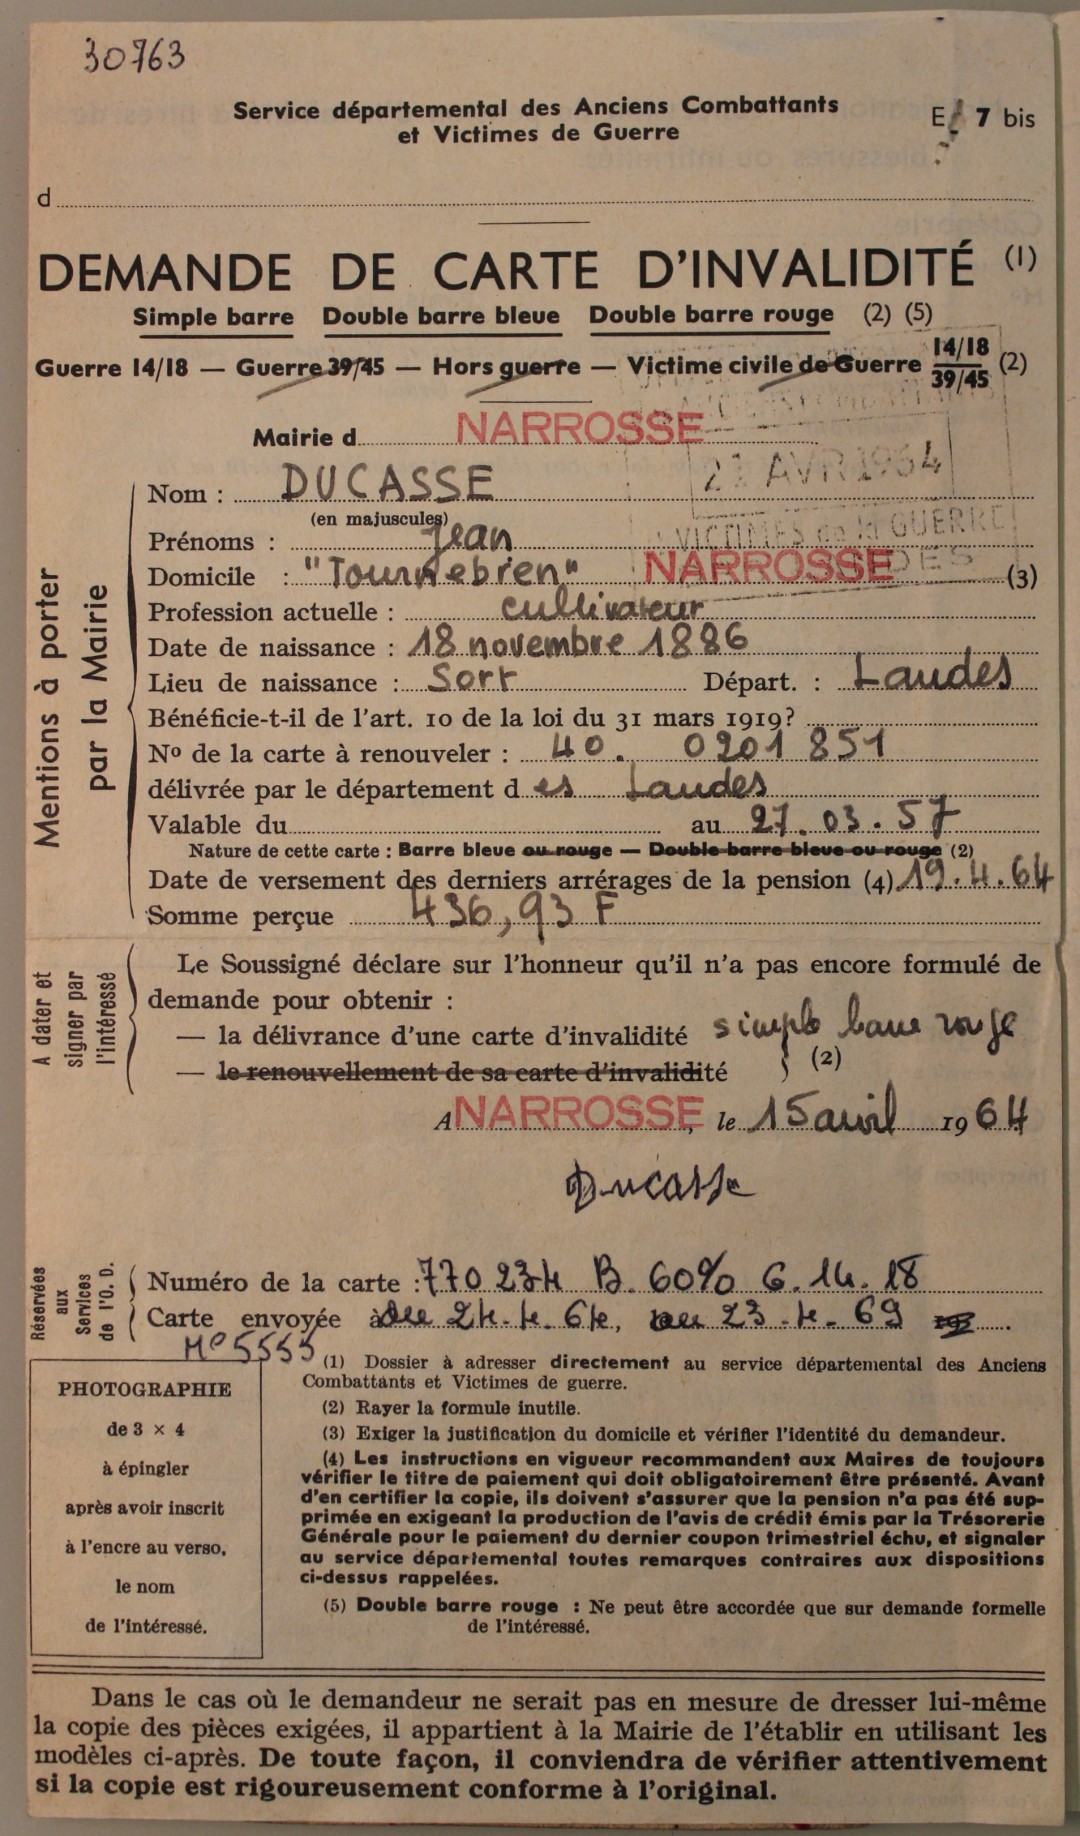 30763
Service départemental des Anciens Combattants
et Victimes de Guerre
E 7 bis
d
DEMANDE DE CARTE D'INVALIDITÉ (1)
Simple barre Double barre bleue Double barre rouge (2) (5)
Guerre 14/18 — Guerre 39/45 — Hors guerre — Victime civile de Guerre 14/18 39/45 (2)
Mairie d NARROSSE
ANCIENS COMBATTANTS
Nom : DUCASSE
22 AVR 1964
(en majuscules)
VICTIMES de la GUERRE
Prénoms : Jean
Domicile : "Tournebren" NARROSSE (3)
Profession actuelle : cultivateur
Date de naissance : 18 novembre 1886
Lieu de naissance : Sort Départ. : Landes
Bénéficie-t-il de l'art. 10 de la loi du 31 mars 1919?
Nº de la carte à renouveler : 40. 0201 851
délivrée par le département des Landes
Valable du au 27.03.57
Nature de cette carte : Barre bleue ou rouge — Double barre bleue ou rouge (2)
Date de versement des derniers arrérages de la pension (4) 19.4.64
Somme perçue 436,93 F
Mentions à porter
par la Mairie
Le Soussigné déclare sur l'honneur qu'il n'a pas encore formulé de
demande pour obtenir :
— la délivrance d'une carte d'invalidité simple barre rouge
— le renouvellement de sa carte d'invalidité } (2)
A dater et
signer par
l'intéressé
A NARROSSE, le 15 avril 1964
Ducasse
Réservées
aux
Services
de l'O. D.
Numéro de la carte : 770 234 B. 60% G. 14. 18
Carte envoyée à du 24.4.64, au 23.4.69
Mº 5555
PHOTOGRAPHIE
de 3 × 4
à épingler
après avoir inscrit
à l'encre au verso,
le nom
de l'intéressé.
(1) Dossier à adresser directement au service départemental des Anciens
Combattants et Victimes de guerre.
(2) Rayer la formule inutile.
(3) Exiger la justification du domicile et vérifier l'identité du demandeur.
(4) Les instructions en vigueur recommandent aux Maires de toujours
vérifier le titre de paiement qui doit obligatoirement être présenté. Avant
d'en certifier la copie, ils doivent s'assurer que la pension n'a pas été sup-
primée en exigeant la production de l'avis de crédit émis par la Trésorerie
Générale pour le paiement du dernier coupon trimestriel échu, et signaler
au service départemental toutes remarques contraires aux dispositions
ci-dessus rappelées.
(5) Double barre rouge : Ne peut être accordée que sur demande formelle
de l'intéressé.
Dans le cas où le demandeur ne serait pas en mesure de dresser lui-même
la copie des pièces exigées, il appartient à la Mairie de l'établir en utilisant les
modèles ci-après. De toute façon, il conviendra de vérifier attentivement
si la copie est rigoureusement conforme à l'original.